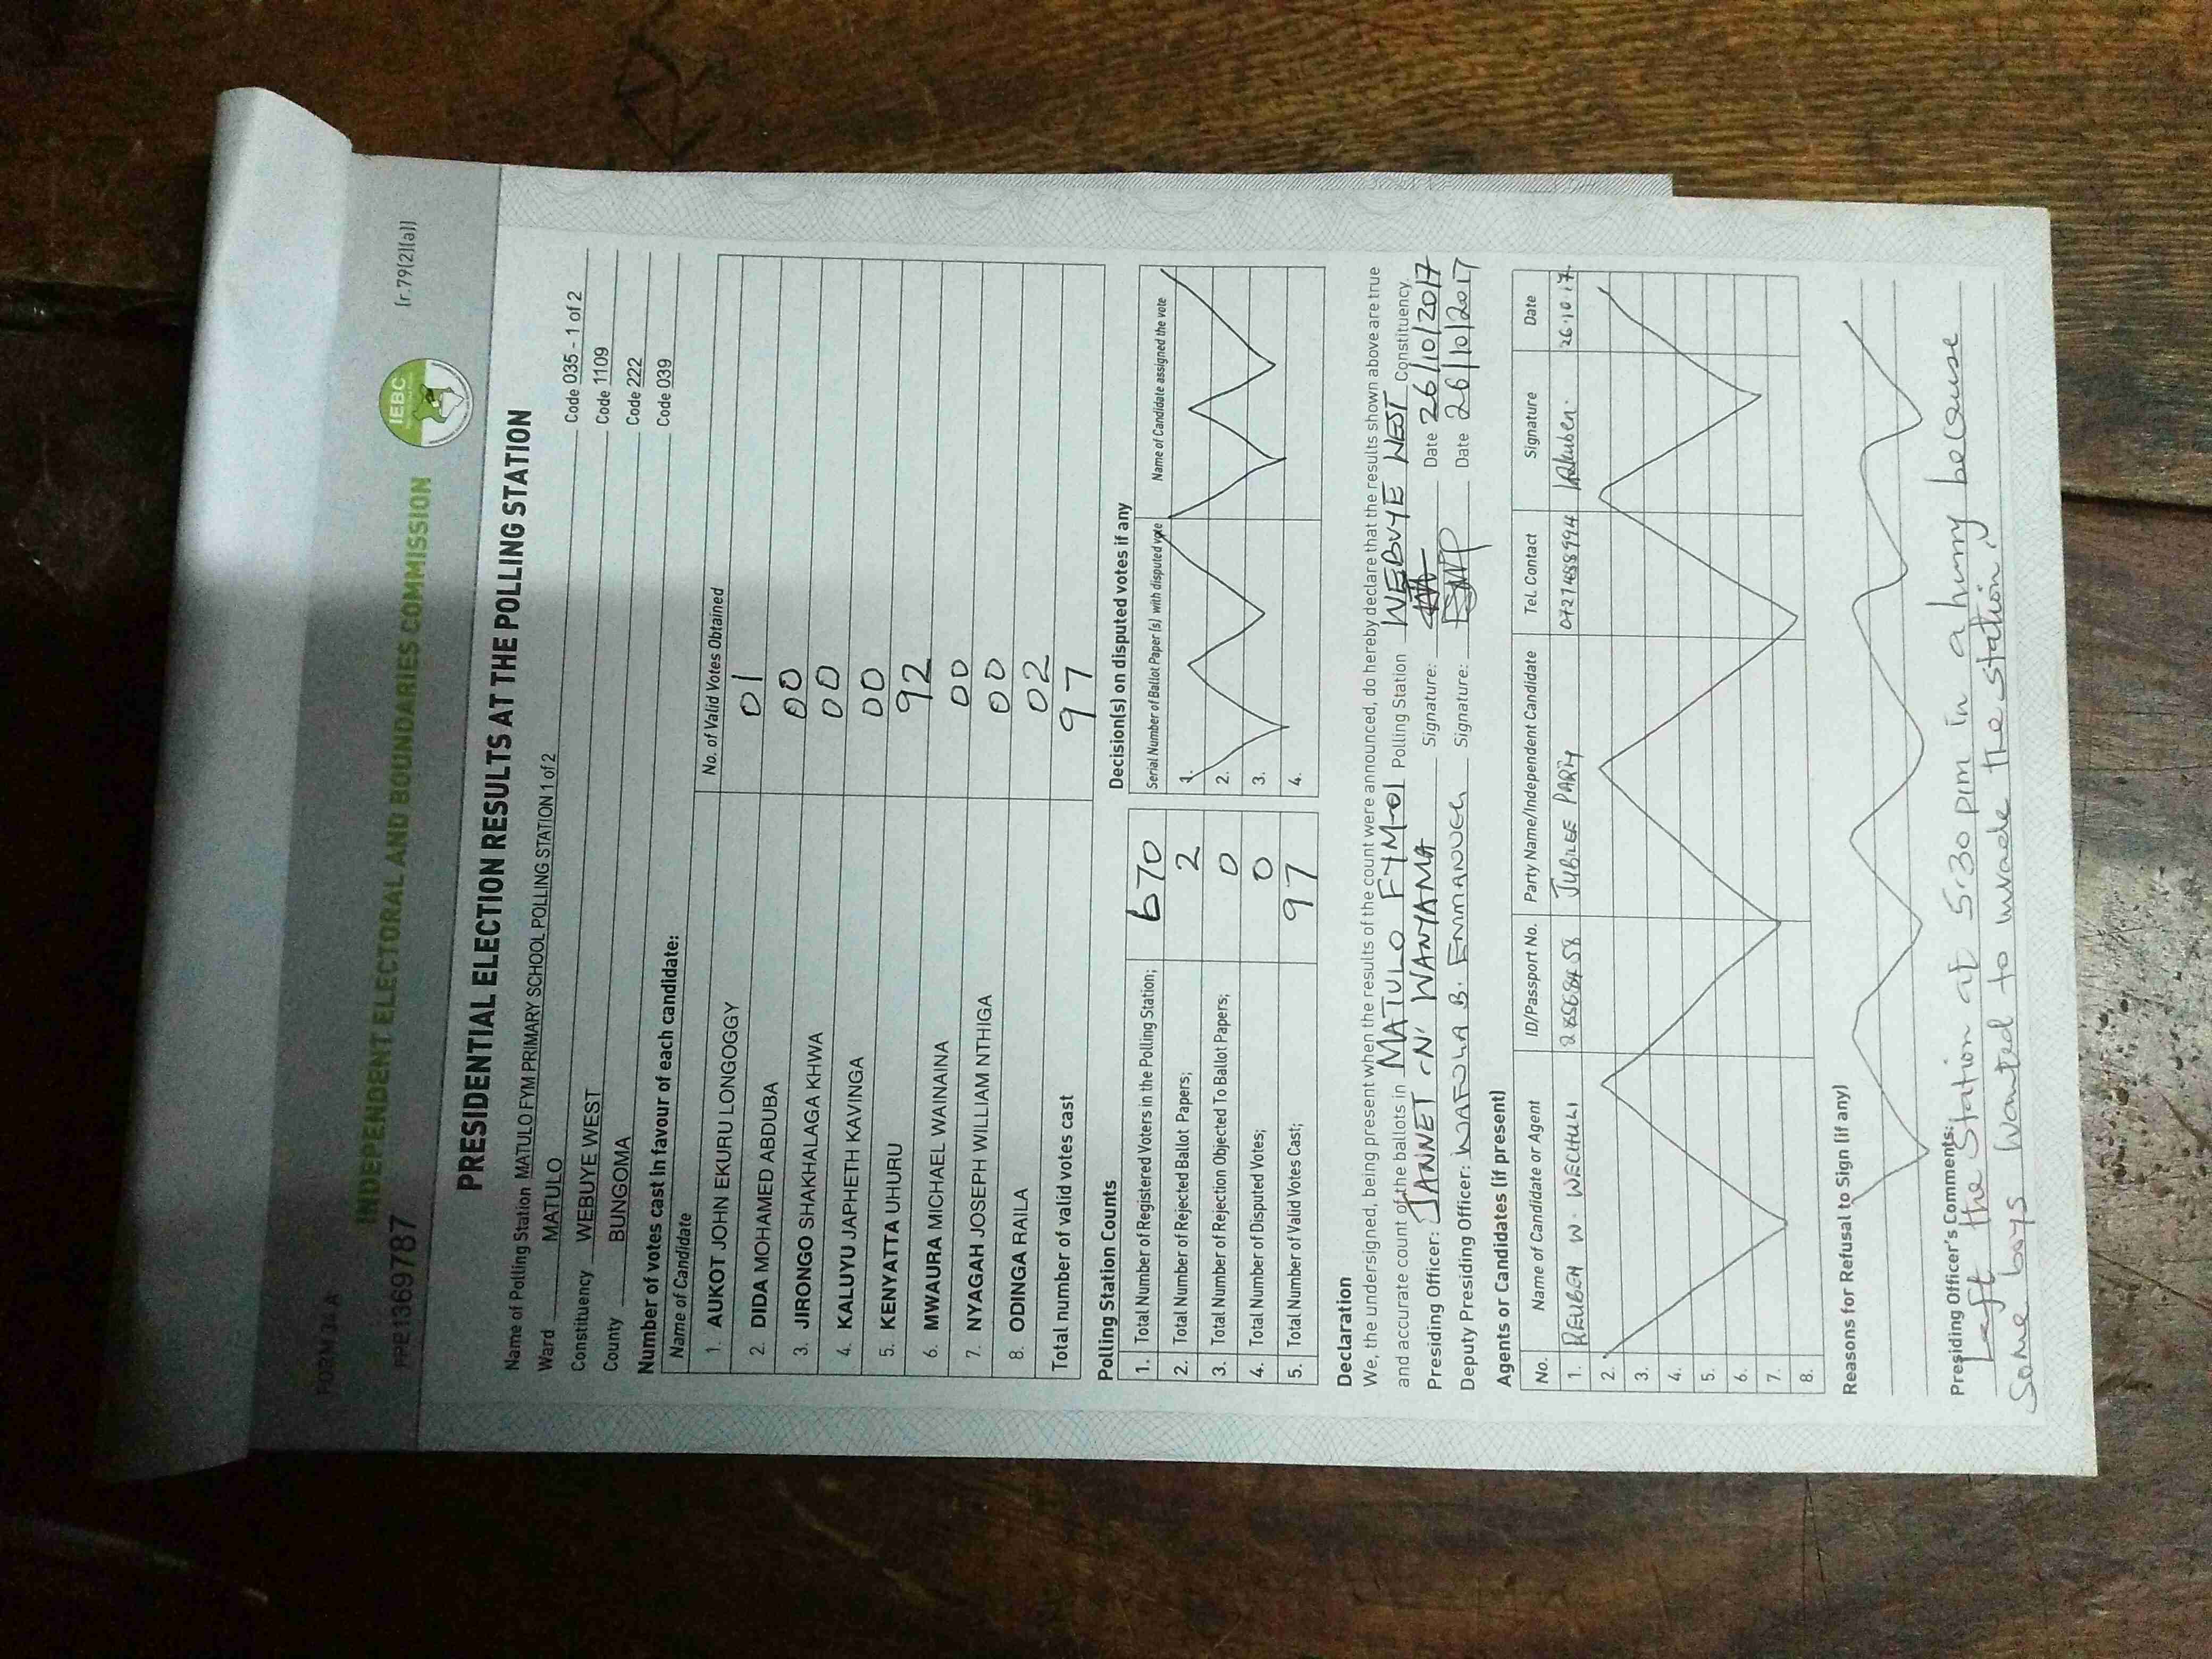 FORM 34 A
INDEPENDENT ELECTORAL AND BOUNDARIES COMMISSION
IEBC
[r.79(2)(a)]
PPE13697 87
PRESIDENTIAL ELECTION RESULTS AT THE POLLING STATION
Name of Polling Station MATULO FYM PRIMARY SCHOOL POLLING STATION 1 of 2 Code 035 - 1 of 2
Ward MATULO Code 1109
Constituency WEBUYE WEST Code 222
County BUNGOMA Code 039
Number of votes cast in favour of each candidate:
Name of Candidate No. of Valid Votes Obtained
1. AUKOT JOHN EKURU LONGOGGY 01
2. DIDA MOHAMED ABDUBA 00
3. JIRONGO SHAKHALAGA KHWA 00
4. KALUYU JAPHETH KAVINGA 00
5. KENYATTA UHURU 92
6. MWAURA MICHAEL WAINAINA 00
7. NYAGAH JOSEPH WILLIAM NTHIGA 00
8. ODINGA RAILA 02
Total number of valid votes cast 97
Polling Station Counts
1. Total Number of Registered Voters in the Polling Station; 670
2. Total Number of Rejected Ballot Papers; 2
3. Total Number of Rejection Objected To Ballot Papers; 0
4. Total Number of Disputed Votes; 0
5. Total Number of Valid Votes Cast; 97
Decision(s) on disputed votes if any
Serial Number of Ballot Paper (s) with disputed vote Name of Candidate assigned the vote
1.
2.
3.
4.
Declaration
We, the undersigned, being present when the results of the count were announced, do hereby declare that the results shown above are true
and accurate count of the ballots in MATULO FYM-01 Polling Station WEBUYE WEST Constituency.
Presiding Officer: JANNET N' WANYAMA Signature: Date 26/10/2017
Deputy Presiding Officer: WAFULA B. EMMANUEL Signature: Date 26/10/2017
Agents or Candidates (if present)
No. Name of Candidate or Agent ID/Passport No. Party Name/Independent Candidate Tel. Contact Signature Date
1. REUBEN W. WECHULI JUBILEE PARTY 0721488944 Reuben. 26.10.17.
2.
3.
4.
5.
6.
7.
8.
Reasons for Refusal to Sign (if any)
Presiding Officer's Comments:
Left the Station at 5:30 pm in a hurry because
some boys wanted to invade the station.